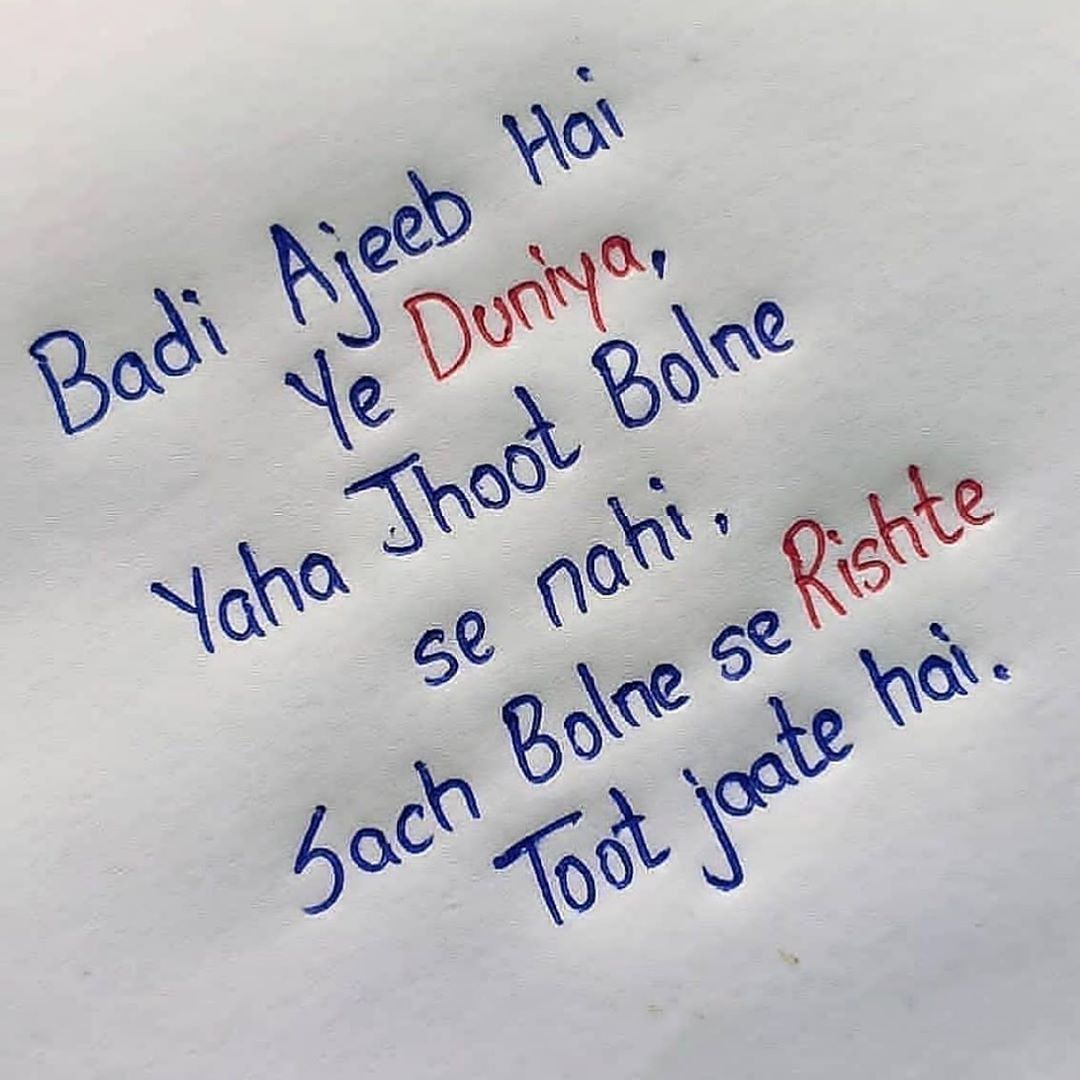 Badi Ajeeb Hai
Ye Duniya,
Yaha Jhoot Bolne
se nahi.
Sach Bolne se Rishte
Toot jaate hai.